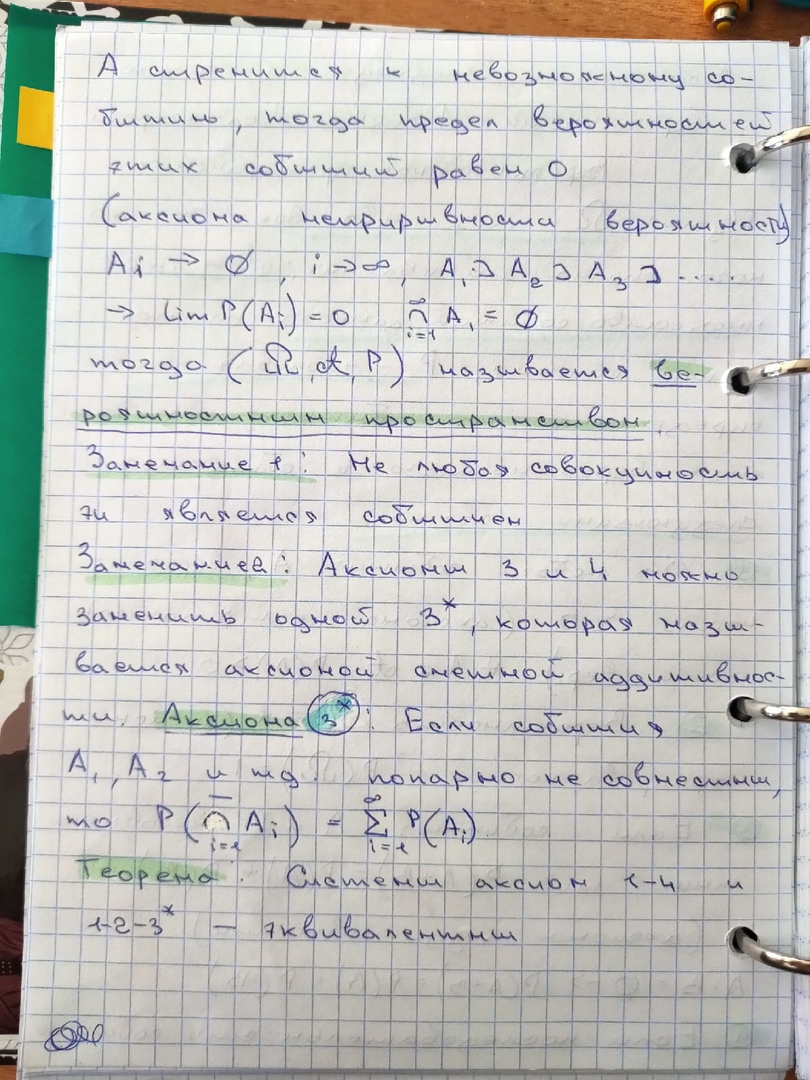 А стремится к невозможному со-
бытию, тогда предел вероятностей
этих событий равен 0
(аксиома непрырывности вероятносту)
Ai → ∅, i → ∞, A₁ ⊃ A₂ ⊃ A₃ ⊃ .....
→ lim P(Ai) = 0 ∞ ∩ i=1 A₁ = ∅
тогда (Ω, 𝒜, P) называется ве-
роятностным пространством.
Замечание 1: Не любая совокупность
эи является событием
Замечание2: Аксиомы 3 и 4 можно
заменить одной 3*, которая назы-
вается аксиомой счетной аддитивнос-
ти. Аксиома 3*: Если события
A₁, A₂ и тд попарно не совместны,
то P(∩ i=1 Ai) = ∞ ∑ i=1 P(Ai)
Теорема. Системы аксиом 1-4 и
1-2-3* — эквивалентны